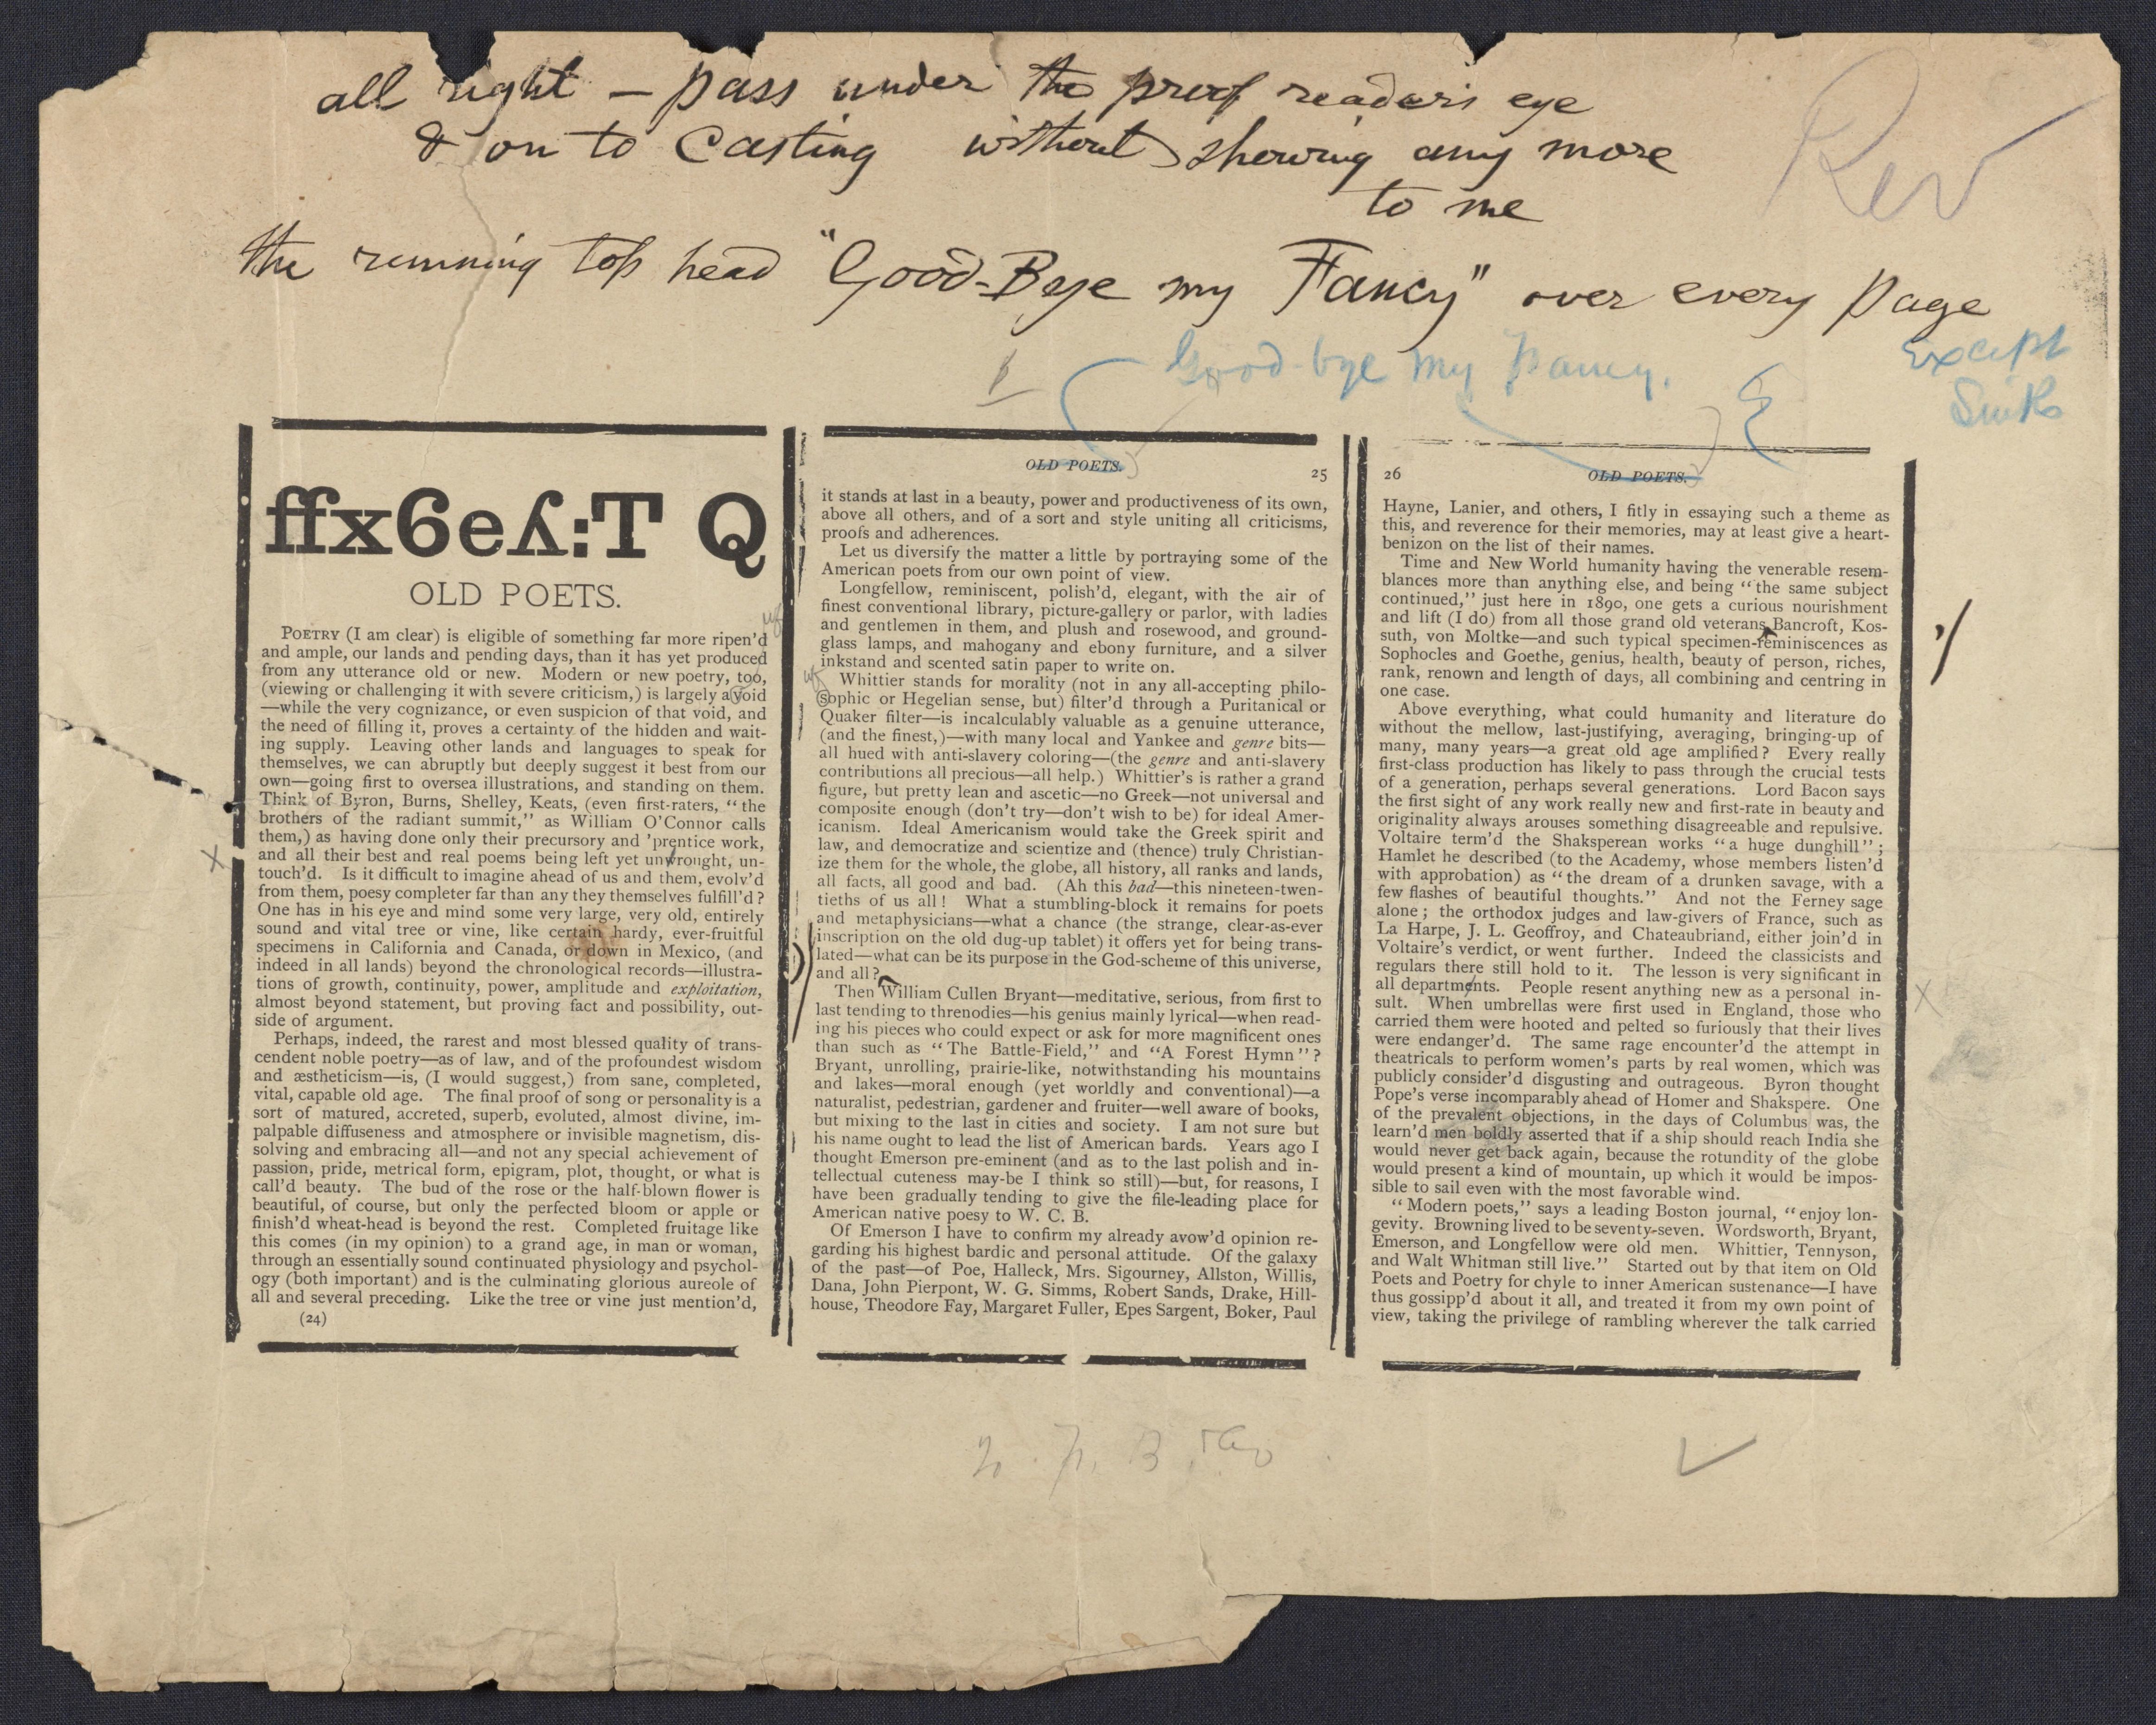 all right — pass under the proof reader's eye
& on to casting without showing any more
to me
Rev
the running top head "Good-Bye my Fancy" over every page
Good-bye my Fancy.
Except
Sinks
ffx6eʎ:T Q
OLD POETS.
POETRY (I am clear) is eligible of something far more ripen'd
and ample, our lands and pending days, than it has yet produced
from any utterance old or new. Modern or new poetry, too,
(viewing or challenging it with severe criticism,) is largely a void
—while the very cognizance, or even suspicion of that void, and
the need of filling it, proves a certainty of the hidden and wait-
ing supply. Leaving other lands and languages to speak for
themselves, we can abruptly but deeply suggest it best from our
own—going first to oversea illustrations, and standing on them.
Think of Byron, Burns, Shelley, Keats, (even first-raters, "the
brothers of the radiant summit," as William O'Connor calls
them,) as having done only their precursory and 'prentice work,
and all their best and real poems being left yet unwrought, un-
touch'd. Is it difficult to imagine ahead of us and them, evolv'd
from them, poesy completer far than any they themselves fulfill'd?
One has in his eye and mind some very large, very old, entirely
sound and vital tree or vine, like certain hardy, ever-fruitful
specimens in California and Canada, or down in Mexico, (and
indeed in all lands) beyond the chronological records—illustra-
tions of growth, continuity, power, amplitude and exploitation,
almost beyond statement, but proving fact and possibility, out-
side of argument.
Perhaps, indeed, the rarest and most blessed quality of trans-
cendent noble poetry—as of law, and of the profoundest wisdom
and æstheticism—is, (I would suggest,) from sane, completed,
vital, capable old age. The final proof of song or personality is a
sort of matured, accreted, superb, evoluted, almost divine, im-
palpable diffuseness and atmosphere or invisible magnetism, dis-
solving and embracing all—and not any special achievement of
passion, pride, metrical form, epigram, plot, thought, or what is
call'd beauty. The bud of the rose or the half-blown flower is
beautiful, of course, but only the perfected bloom or apple or
finish'd wheat-head is beyond the rest. Completed fruitage like
this comes (in my opinion) to a grand age, in man or woman,
through an essentially sound continuated physiology and psychol-
ogy (both important) and is the culminating glorious aureole of
all and several preceding. Like the tree or vine just mention'd,
(24)
OLD POETS. 25
it stands at last in a beauty, power and productiveness of its own,
above all others, and of a sort and style uniting all criticisms,
proofs and adherences.
Let us diversify the matter a little by portraying some of the
American poets from our own point of view.
Longfellow, reminiscent, polish'd, elegant, with the air of
finest conventional library, picture-gallery or parlor, with ladies
and gentlemen in them, and plush and rosewood, and ground-
glass lamps, and mahogany and ebony furniture, and a silver
inkstand and scented satin paper to write on.
Whittier stands for morality (not in any all-accepting philo-
sophic or Hegelian sense, but) filter'd through a Puritanical or
Quaker filter—is incalculably valuable as a genuine utterance,
(and the finest,)—with many local and Yankee and genre bits—
all hued with anti-slavery coloring—(the genre and anti-slavery
contributions all precious—all help.) Whittier's is rather a grand
figure, but pretty lean and ascetic—no Greek—not universal and
composite enough (don't try—don't wish to be) for ideal Amer-
icanism. Ideal Americanism would take the Greek spirit and
law, and democratize and scientize and (thence) truly Christian-
ize them for the whole, the globe, all history, all ranks and lands,
all facts, all good and bad. (Ah this bad—this nineteen-twen-
tieths of us all! What a stumbling-block it remains for poets
and metaphysicians—what a chance (the strange, clear-as-ever
inscription on the old dug-up tablet) it offers yet for being trans-
lated—what can be its purpose in the God-scheme of this universe,
and all?
Then William Cullen Bryant—meditative, serious, from first to
last tending to threnodies—his genius mainly lyrical—when read-
ing his pieces who could expect or ask for more magnificent ones
than such as "The Battle-Field," and "A Forest Hymn"?
Bryant, unrolling, prairie-like, notwithstanding his mountains
and lakes—moral enough (yet worldly and conventional)—a
naturalist, pedestrian, gardener and fruiter—well aware of books,
but mixing to the last in cities and society. I am not sure but
his name ought to lead the list of American bards. Years ago I
thought Emerson pre-eminent (and as to the last polish and in-
tellectual cuteness may-be I think so still)—but, for reasons, I
have been gradually tending to give the file-leading place for
American native poesy to W. C. B.
Of Emerson I have to confirm my already avow'd opinion re-
garding his highest bardic and personal attitude. Of the galaxy
of the past—of Poe, Halleck, Mrs. Sigourney, Allston, Willis,
Dana, John Pierpont, W. G. Simms, Robert Sands, Drake, Hill-
house, Theodore Fay, Margaret Fuller, Epes Sargent, Boker, Paul
26 OLD POETS.
Hayne, Lanier, and others, I fitly in essaying such a theme as
this, and reverence for their memories, may at least give a heart-
benizon on the list of their names.
Time and New World humanity having the venerable resem-
blances more than anything else, and being "the same subject
continued," just here in 1890, one gets a curious nourishment
and lift (I do) from all those grand old veterans Bancroft, Kos-
suth, von Moltke—and such typical specimen-reminiscences as
Sophocles and Goethe, genius, health, beauty of person, riches,
rank, renown and length of days, all combining and centring in
one case.
Above everything, what could humanity and literature do
without the mellow, last-justifying, averaging, bringing-up of
many, many years—a great old age amplified? Every really
first-class production has likely to pass through the crucial tests
of a generation, perhaps several generations. Lord Bacon says
the first sight of any work really new and first-rate in beauty and
originality always arouses something disagreeable and repulsive.
Voltaire term'd the Shaksperean works "a huge dunghill";
Hamlet he described (to the Academy, whose members listen'd
with approbation) as "the dream of a drunken savage, with a
few flashes of beautiful thoughts." And not the Ferney sage
alone; the orthodox judges and law-givers of France, such as
La Harpe, J. L. Geoffroy, and Chateaubriand, either join'd in
Voltaire's verdict, or went further. Indeed the classicists and
regulars there still hold to it. The lesson is very significant in
all departments. People resent anything new as a personal in-
sult. When umbrellas were first used in England, those who
carried them were hooted and pelted so furiously that their lives
were endanger'd. The same rage encounter'd the attempt in
theatricals to perform women's parts by real women, which was
publicly consider'd disgusting and outrageous. Byron thought
Pope's verse incomparably ahead of Homer and Shakspere. One
of the prevalent objections, in the days of Columbus was, the
learn'd men boldly asserted that if a ship should reach India she
would never get back again, because the rotundity of the globe
would present a kind of mountain, up which it would be impos-
sible to sail even with the most favorable wind.
"Modern poets," says a leading Boston journal, "enjoy lon-
gevity. Browning lived to be seventy-seven. Wordsworth, Bryant,
Emerson, and Longfellow were old men. Whittier, Tennyson,
and Walt Whitman still live." Started out by that item on Old
Poets and Poetry for chyle to inner American sustenance—I have
thus gossipp'd about it all, and treated it from my own point of
view, taking the privilege of rambling wherever the talk carried